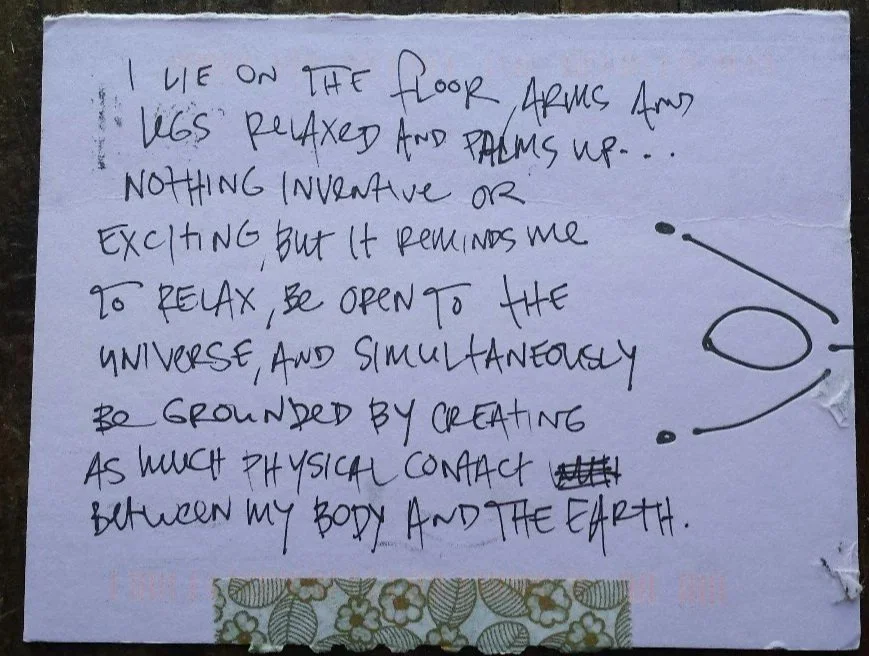 I LIE ON THE FLOOR, ARMS AND
LEGS RELAXED AND PALMS UP...
NOTHING INVENTIVE OR
EXCITING, BUT IT REMINDS ME
TO RELAX, BE OPEN TO THE
UNIVERSE, AND SIMULTANEOUSLY
BE GROUNDED BY CREATING
AS MUCH PHYSICAL CONTACT
BETWEEN MY BODY AND THE EARTH.